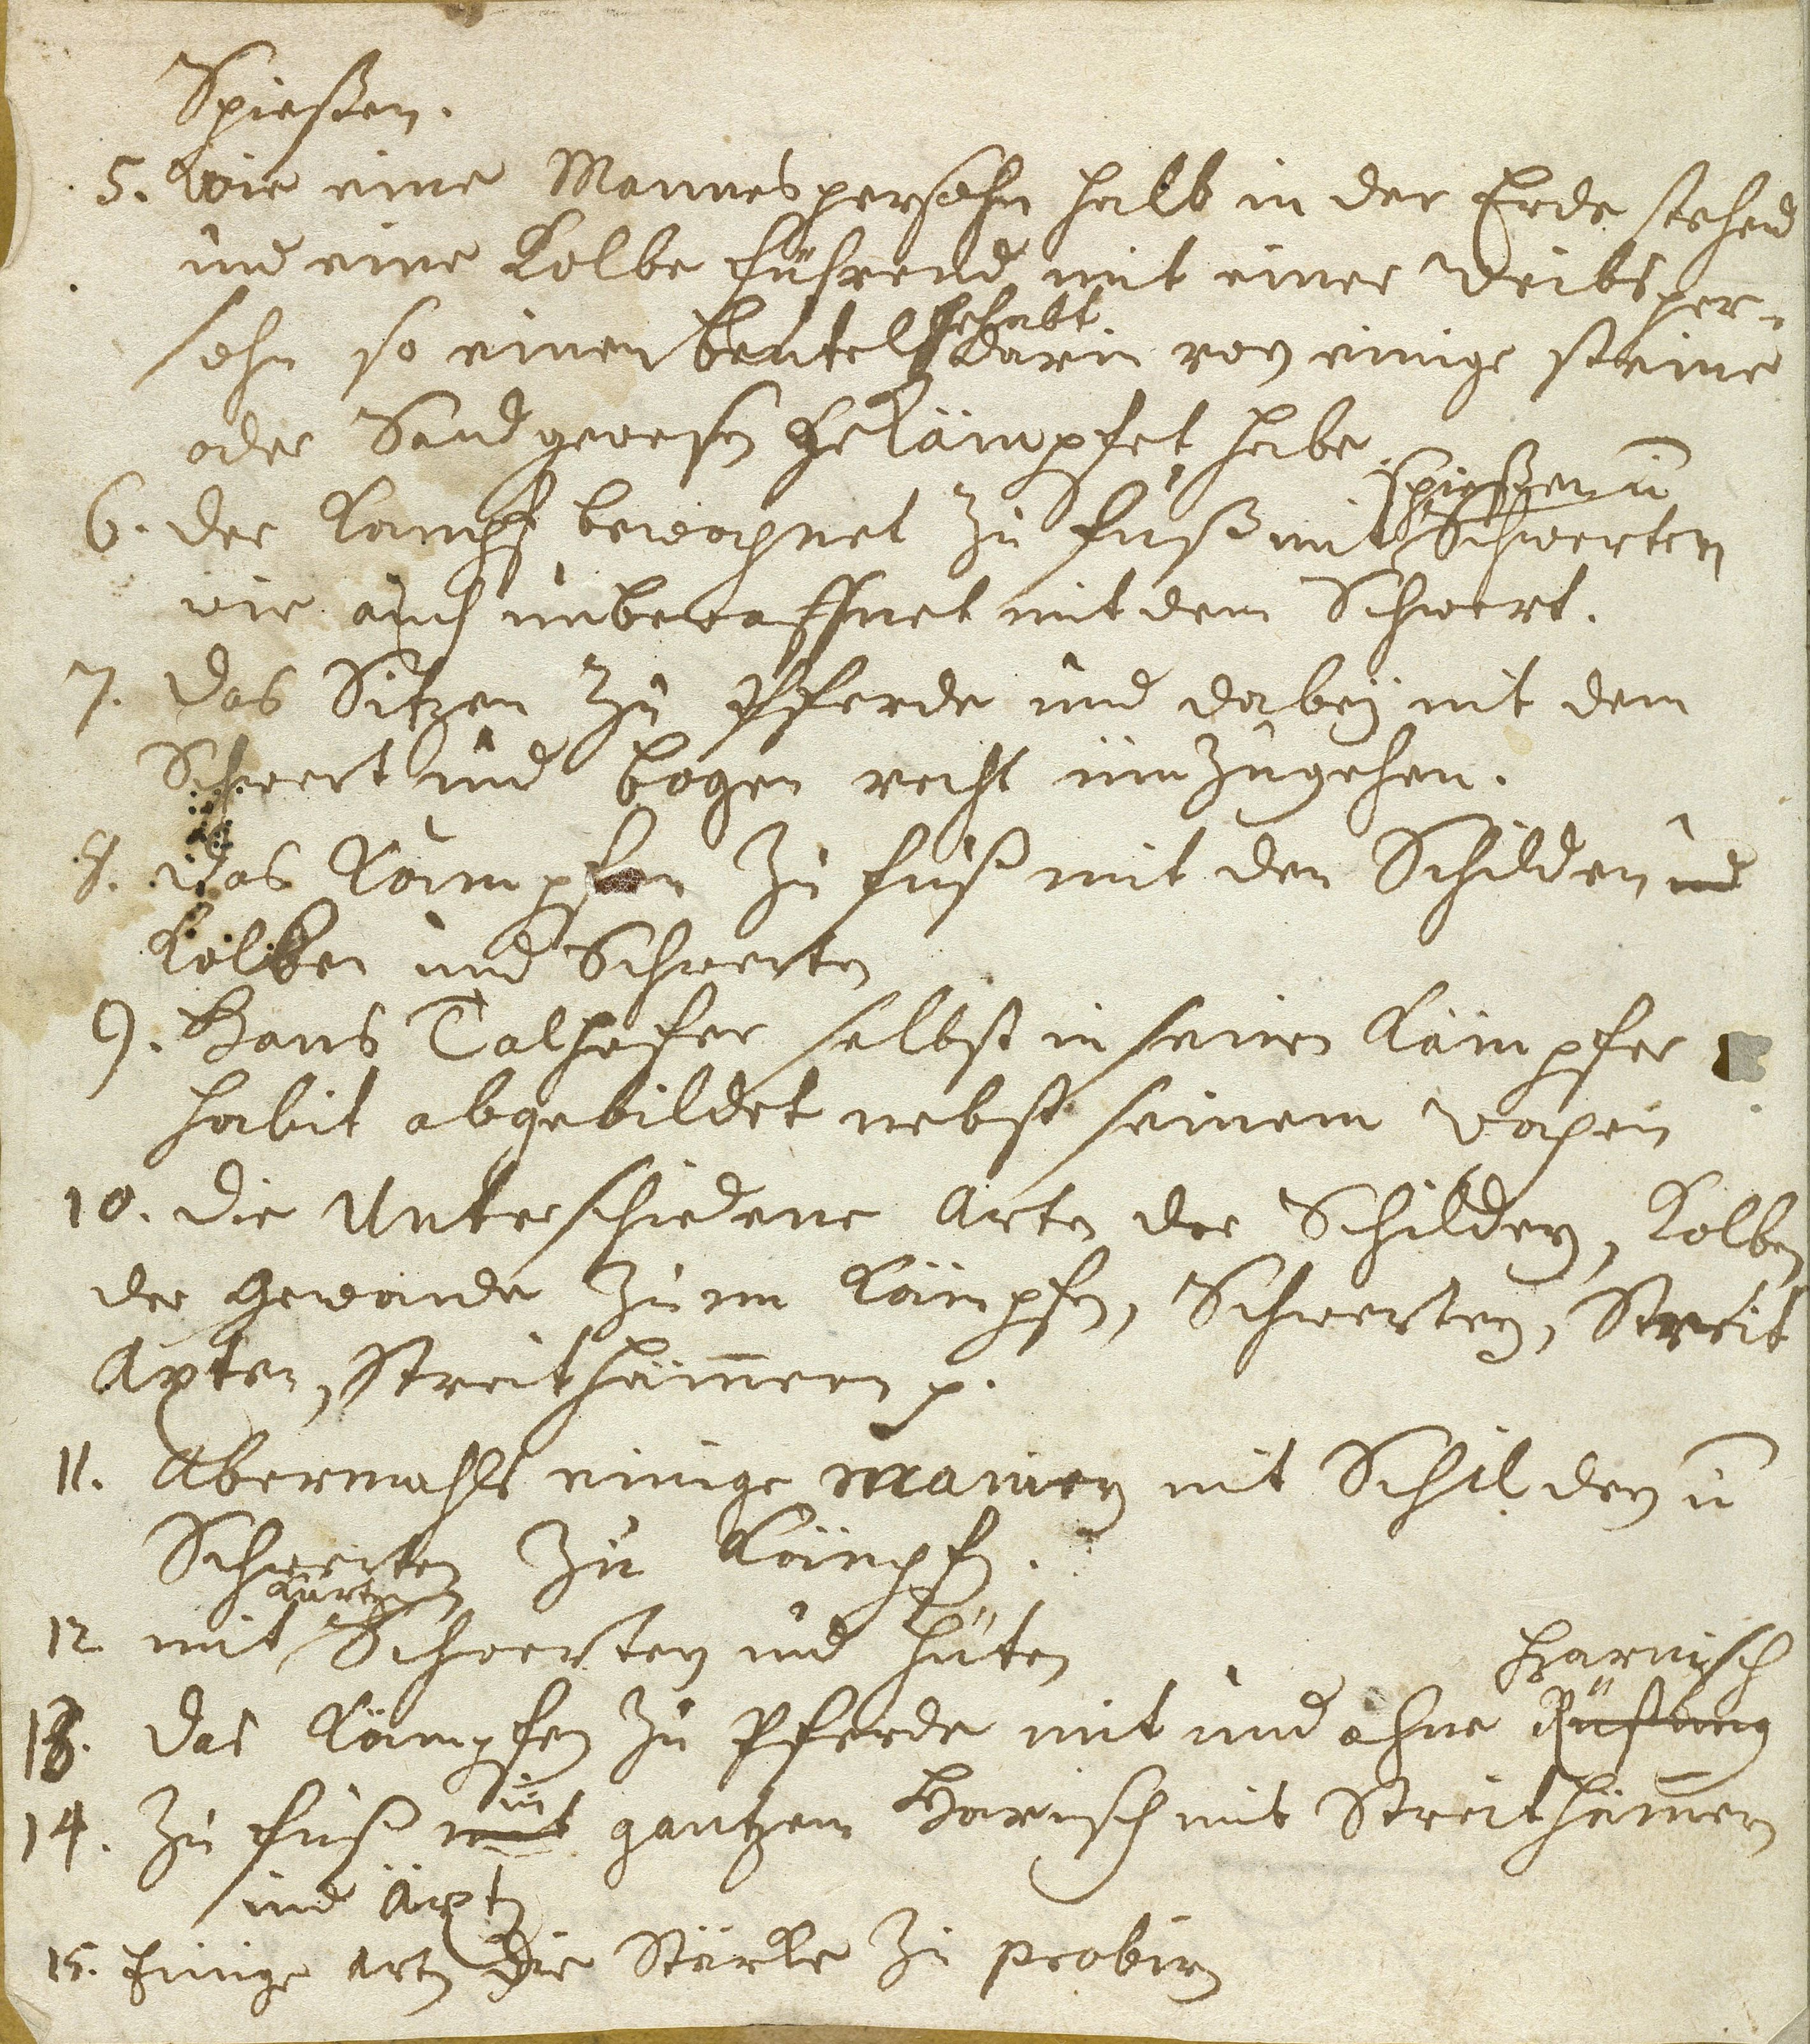 Spießen.
5. Wie eine Mannespersohn halb in der Erde stehend
und eine Kolbe führend mit einer Weibsper-
gehabt
sohn so einen beutel darin von einige steine
oder Sand gewesen gekämpfet habe.
Spießen u
6. der Kampf bewapnet zu fuß mit Schwerten
wie auch unbewaffnet mit dem Schwert.
7. das Sitzen zu Pferde und dabeÿ mit dem
Schwert und bogen recht umzugehen.
8. das Kämpfen zu fuß mit den Schilden und
Kolben und Schwerten
9. Hans Talhofer selbst in seinen Kämpfer
habit abgebildet nebst seinem Wapen
10. die Unterschiedene Arten der Schilden, Kolben
der gewände zum Kämpfen, Schwerten, Streit
Axten, Streithämern p.
11. Abermahls einige manieren mit Schilden u
Schwerten zu Kämpfen.
kurtzen
12 mit Schwerten und Hüten
Harnisch
13. das Kämpfen zu Pferde mit und ohne Rüstung
in
14. zu fuß mit gantzem Harnisch mit Streithämern
und Äxten
15. Einige Arten die Stärke zu probiren